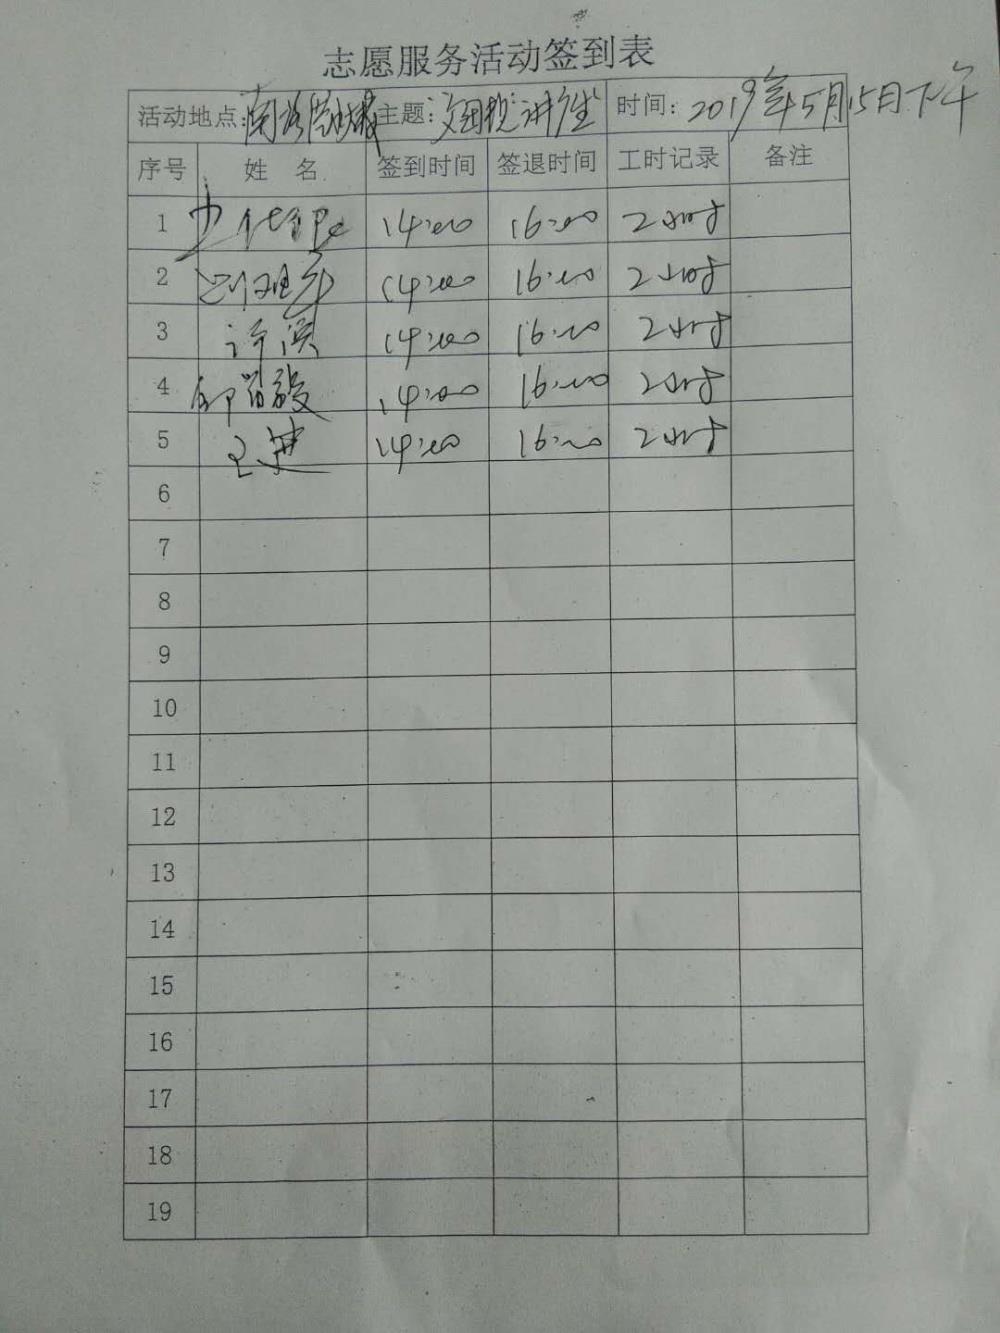 志愿服务活动签到表
活动地点: 南 主题: 讲座 时间: 2019年5月15日下午
序号 姓 名 签到时间 签退时间 工时记录 备注
1 14:00 16:00 2小时
2 14:00 16:00 2小时
3 许滨 14:00 16:00 2小时
4 14:00 16:00 2小时
5 王建 14:00 16:00 2小时
6
7
8
9
10
11
12
13
14
15
16
17
18
19